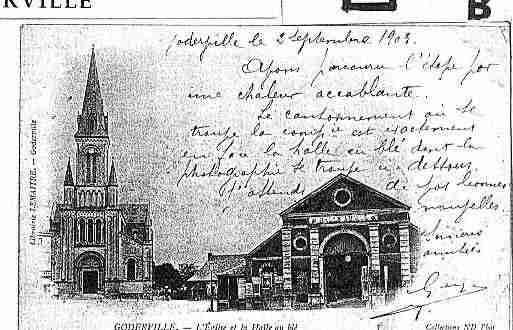 RVILLE
B
Goderville le 2 Septembre 1903.
Avons parcouru l'étape par
une chaleur accablante.
Le cantonnement où se
trouve la compie est exactement
en face la halle au blé dont la
photographie se trouve ci dessous
J'attends de vos bonnes
nouvelles.
amitiés
Librairie LEMAITRE. — Goderville
GODERVILLE. — L'Église et la Halle au blé
Collections ND Phot